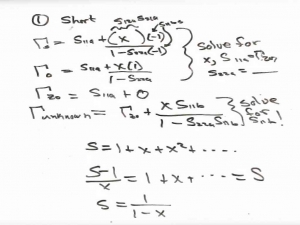 ① Short S12a S21a
Γs = S11a + (x)(-1) / 1 - S22a(-1)
Γo = S11a + x(1) / 1 - S22a
Γzo = S11a + 0
solve for x, S11a = Γzo, S22a = __
Γunknown = Γzo + x S11b / 1 - S22a S11b
solve for S11b!
S = 1 + x + x² + ....
S-1 / x = 1 + x + .... = S
S = 1 / 1-x